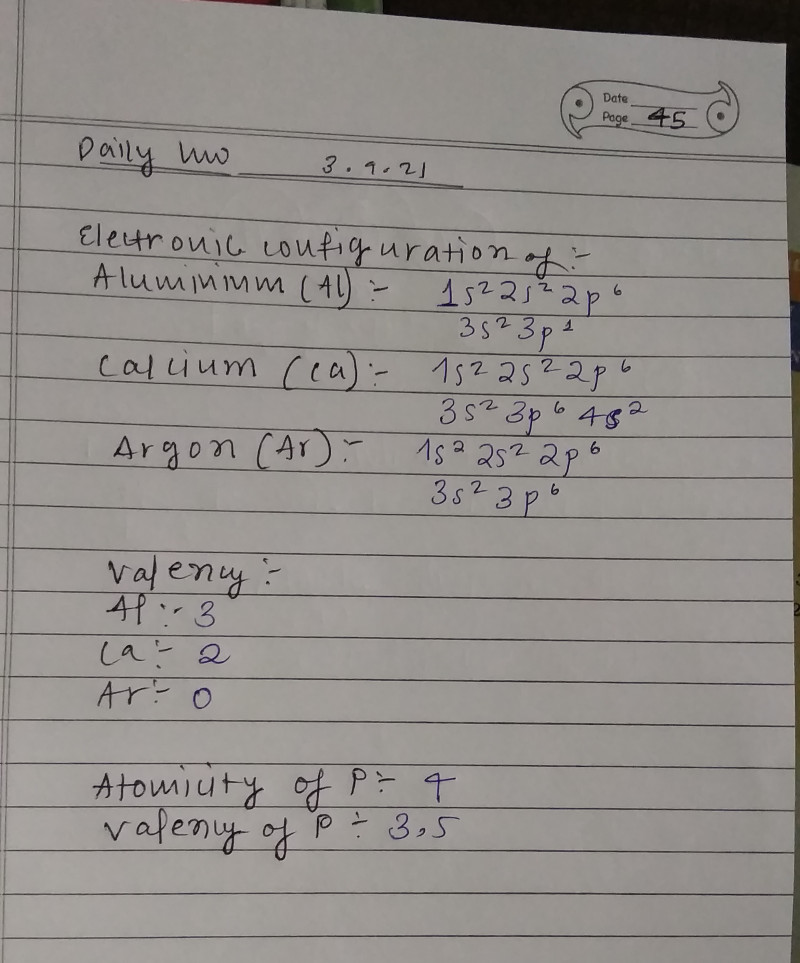 Date
Page 45
Daily HW 3.9.21
Electronic configuration of :-
Aluminium (Al) :- 1s² 2s² 2p⁶
3s² 3p¹
Calcium (Ca) :- 1s² 2s² 2p⁶
3s² 3p⁶ 4s²
Argon (Ar) :- 1s² 2s² 2p⁶
3s² 3p⁶
Valency :-
Al :- 3
Ca :- 2
Ar :- 0
Atomicity of P :- 4
Valency of P :- 3,5